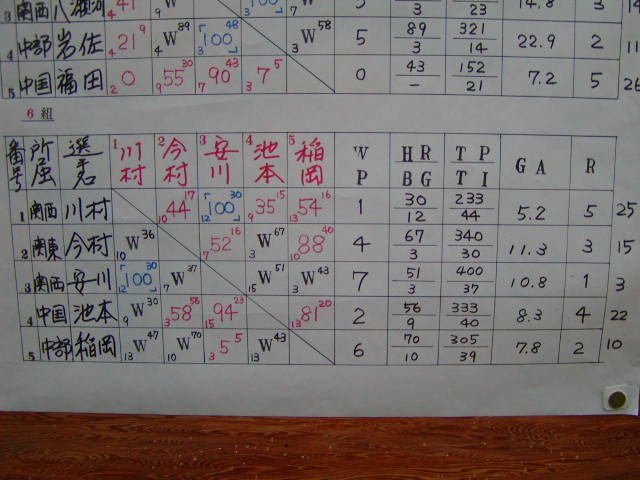 3 関西 八瀬河 4 41 9 W 100 5 3 23 14.8 3 14
4 中部 岩佐 4 21 9 4 W 89 3 「100」 48 3 W 58 5 89/3 321/14 22.9 2 11
5 中国 福田 2 0 9 55 30 7 90 43 3 7 5 0 43/- 152/21 7.2 5 26
6組
番号 所属 選手名 1 川村 2 今村 3 安川 4 池本 5 稲岡 WP HR/BG TP/TI GA R
1 関西 川村 10 44 17 12 「100」 30 9 35 15 13 54 16 1 30/12 233/44 5.2 5 25
2 関東 今村 10 W 36 7 52 16 3 W 67 10 88 40 4 67/3 340/30 11.3 3 15
3 関西 安川 12 「100」 30 7 W 37 15 W 51 3 W 43 7 51/3 400/37 10.8 1 3
4 中国 池本 9 W 30 3 58 56 15 94 23 13 81 20 2 56/9 333/40 8.3 4 22
5 中部 稲岡 13 W 47 10 W 70 3 5 5 13 W 43 6 70/10 305/39 7.8 2 10